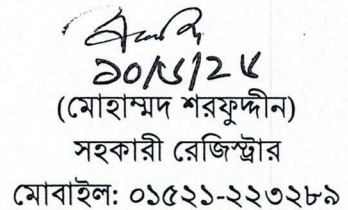 (মোহাম্মদ শরফুদ্দীন)
সহকারী রেজিস্ট্রার
মোবাইল: ০১৫২১-২২৩২৮৯